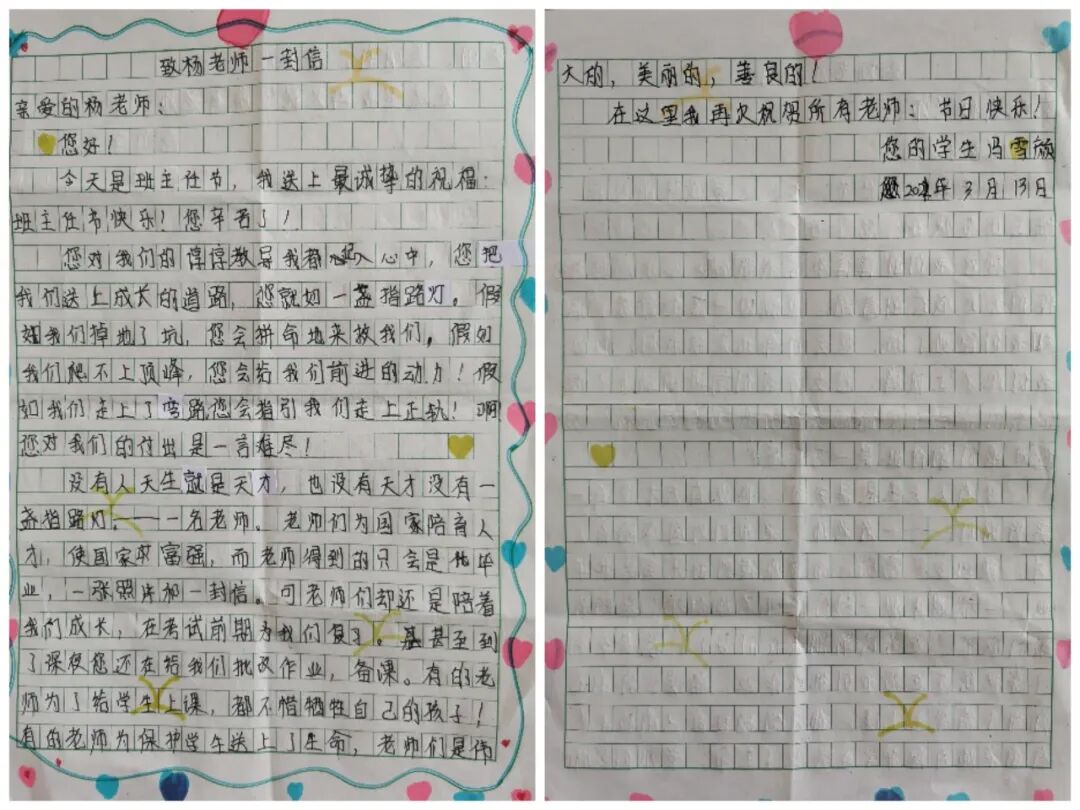 致杨老师一封信
亲爱的杨老师：
您好！
今天是班主任节，我送上最诚挚的祝福：
班主任节快乐！您辛苦了！
您对我们的谆谆教导我都记入心中，您把
我们送上成长的道路，您就如一盏指路灯。假
如我们掉地了坑，您会拼命地来救我们。假如
我们爬不上顶峰，您会给我们前进的动力！假
如我们走上了弯路您会指引我们走上正轨！啊！
您对我们的付出是一言难尽！
没有人天生就是天才，也没有天才没有一
盏指路灯。——一名老师。老师们为国家陪育人
才，使国家富强，而老师得到的只会是毕
业，一张照片和一封信。可老师们却还是陪着
我们成长，在考试前期为我们复习。甚至到
了深夜您还在给我们批改作业，备课。有的老
师为了给学生上课，都不惜牺牲自己的孩子！
有的老师为保护学生送上了生命，老师们是伟
大的，美丽的，善良的！
在这里我再次祝贺所有老师：节日快乐！
您的学生冯雪薇
年3月13日